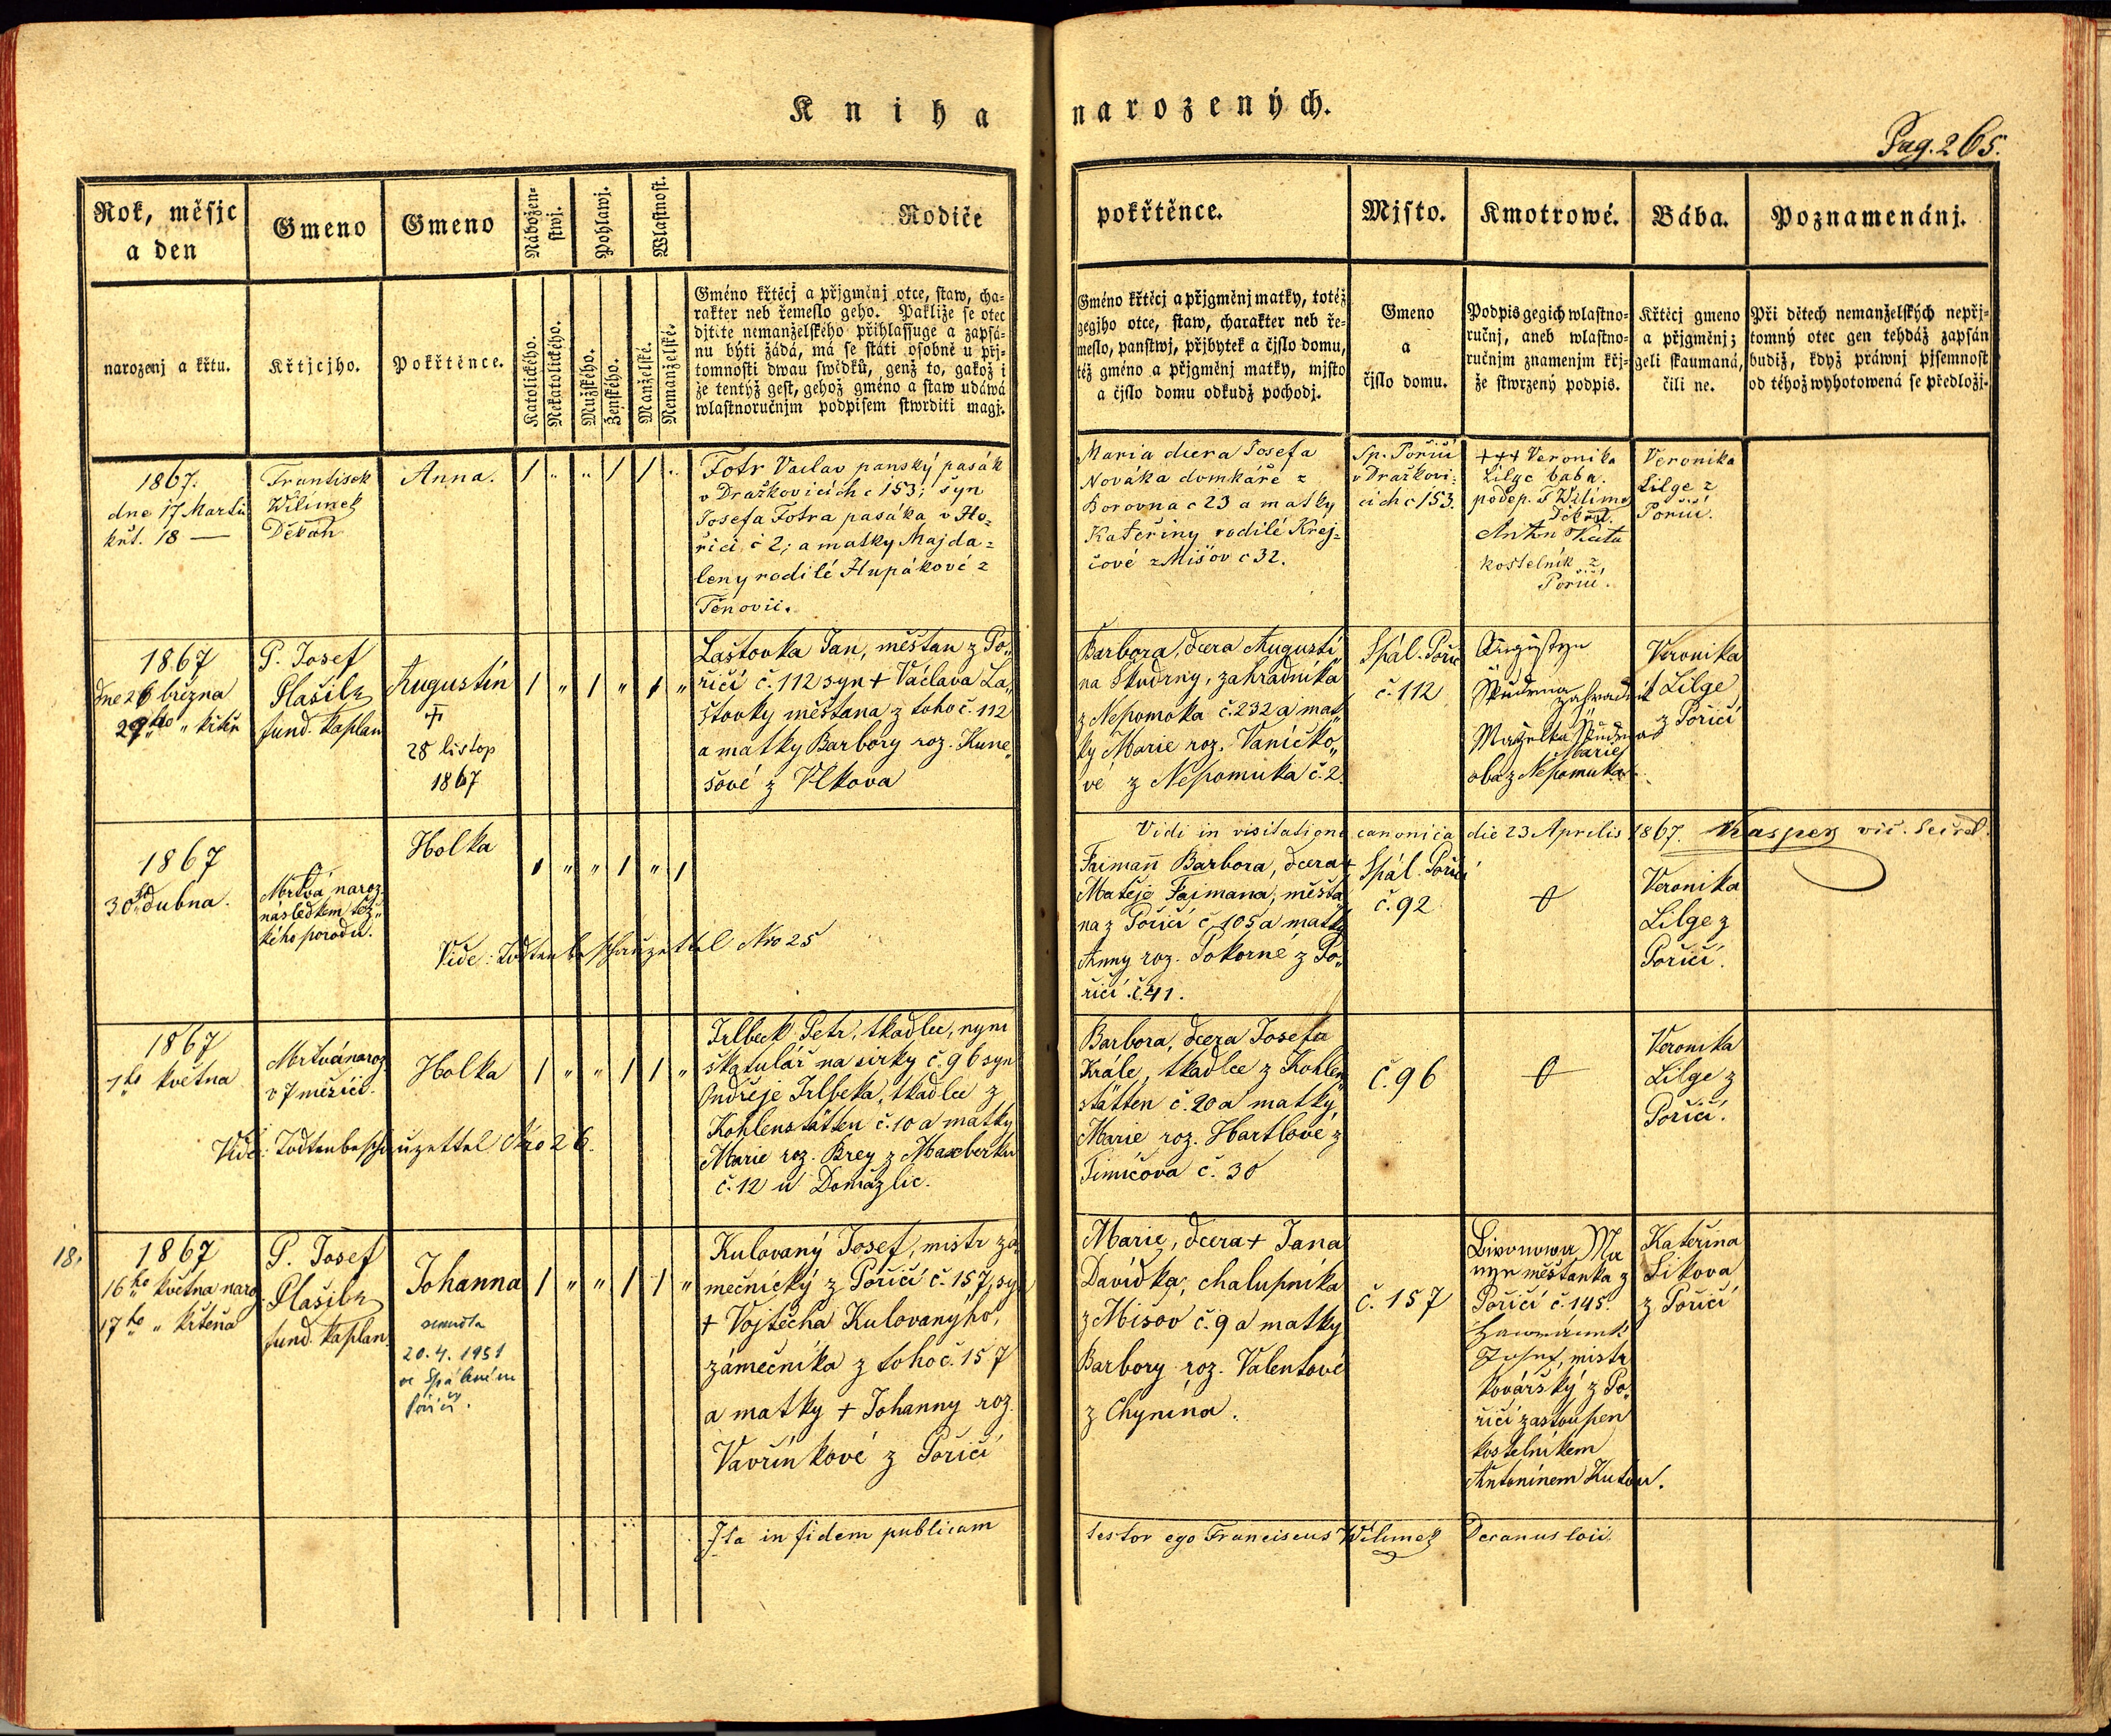 Kniha narozených.
Pag. 265.
Rok, měsjc
a den
narozenj a křtu.
Gmeno
Křtjcjho.
Gmeno
Pokřtěnce.
Nábožen-
stwj.
Katolického.
Nekatolického.
Pohlawj.
Mužského.
Ženského.
Wlastnost.
Manželské.
Nemanželské.
Rodiče
Gméno křtěcj a přjgměnj otce, staw, cha-
rakter neb řemeslo geho. Pakliže se otec
djtěte nemanželského přihlassuge a zapsá-
nu býti žádá, má se státi osobně u přj-
tomnosti dwau swědků, genž to, gakož i
že tentýž gest, gehož gméno a staw udáwá
wlastnoručnjm podpisem stwrditi magj.
pokřtěnce.
Gméno křtěcj a přjgměnj matky, totéž
gegjho otce, staw, charakter neb ře-
meslo, panstwj, přjbytek a čjslo domu,
též gméno a přjgměnj matky, mjsto
a čjslo domu odkudž pocházj.
Mjsto.
Gmeno
a
čjslo domu.
Kmotrowé.
Podpis gegich wlastno-
ručnj, aneb wlastno-
ručnjm znamenjm křj-
že stwrzený podpis.
Bába.
Křtěcj gmeno
a přjgměnj;
geli skaumaná,
čili ne.
Poznamenánj.
Při dětech nemanželských nepřj-
tomný otec gen tehdáž zapsán
budiž, když práwnj pjsemnost
od téhož wyhotowená se předložj.
1867.
dne 17 Martii
křt. 18 —
Frantisek
Wilimek
Děkan
Anna.
1 " " 1 1 "
Fotr Vaclav panský pasák
v Dražkovicích c 153; syn
Josefa Fotra pasáka v Ho-
řici č 2; a matky Majda-
leny rodilé Hupákové z
Těnovii.
Maria dcera Josefa
Nováka domkáře z
Borovna c 23 a matky
Kateřiny rodilé Krej-
čové z Mišov c 32.
Sp. Poričí
v Dražkovi-
cich c 153.
+++ Veronika
Lilge baba.
podep. F Wilimek
Děkan.
Anton Kuta
kostelník z
Poričí.
Veronika
Lilge z
Poričí.
1867
dne 26 března
27ho " křtěn
P. Josef
Plašil
fund. kaplan
Augustin
+
28 listop
1867
1 " 1 " 1 "
Laštovka Jan, měštan z Po-
řičí č. 112 syn + Václava La-
štovky měštana z toho č. 112
a matky Barbory roz. Kune-
šové z Vlkova
Barbora, dcera Augusti-
na Škudrny, zahradníka
z Nepomoka č. 232 a mat-
ky Marie roz. Vaničko-
vé z Nepomuka č. 2.
Spál. Poříč
č. 112
Augustyn
Škudrna zahradník
Manželka Škudrnas
Marie
oba z Nepomuka.
Veronika
Lilge
z Poříčí
1867
30ho dubna.
Mrtvá naroz.
následkem těž-
kého porodu.
Holka
1 " " 1 " 1
Vide: Todtenbeschauzettel Nro 25
Vidi in visitatione canonica die 23 Aprilis 1867. Kasper vic. Secret.
Faiman Barbora, dcera +
Matěje Faimana, měšťa-
na z Poříčí č. 105 a matky
Anny roz. Pokorné z Po-
říčí č. 41.
Spál. Poříčí
č. 92
Veronika
Lilge z
Poříčí.
1867
1ho května
Mrtvá naroz.
v 7 měsíci.
Holka
1 " " 1 1 "
Vide: Todtenbeschauzettel Nro 26.
Irlbeck Petr, tkadlec, nyní
škatulář na sirky č. 96 syn
Ondřeje Irlbeka, tkadlce z
Kohlenstätten č. 10 a matky
Marie roz. Brey z Maxberku
č. 12 u Domažlic.
Barbora, dcera Josefa
Krále, tkadlce z Kohlen-
stätten č. 20 a matky
Marie roz. Hartlové z
Fimičova č. 30
č. 96
Veronika
Lilge z
Poříčí.
18.
1867
16ho května naroz.
17ho " křtěna
P. Josef
Plašil
fund. kaplan.
Johanna
zemřela
20.4.1951
ve Spáleném
Poříčí.
1 " " 1 1 "
Kulovaný Josef, mistr zá-
mečnický z Poříčí č. 157, syn
+ Vojtěcha Kulovanýho,
zámečníka z toho č. 157
a matky + Johanny roz.
Vavřinkové z Poříčí
Marie, dcera + Jana
Davídka, chalupníka
z Mišov č. 9 a matky
Barbory roz. Valentové
z Chynína.
č. 157
měštanka z
Poříčí č. 145.
Josef, mistr
kovářský z Po-
říčí zastoupen
kostelníkem
Antonínem Kutou.
Kateřina
Sikova
z Poříčí
Ita in fidem publicam testor ego Franciscus Wilimek Decanus loci.